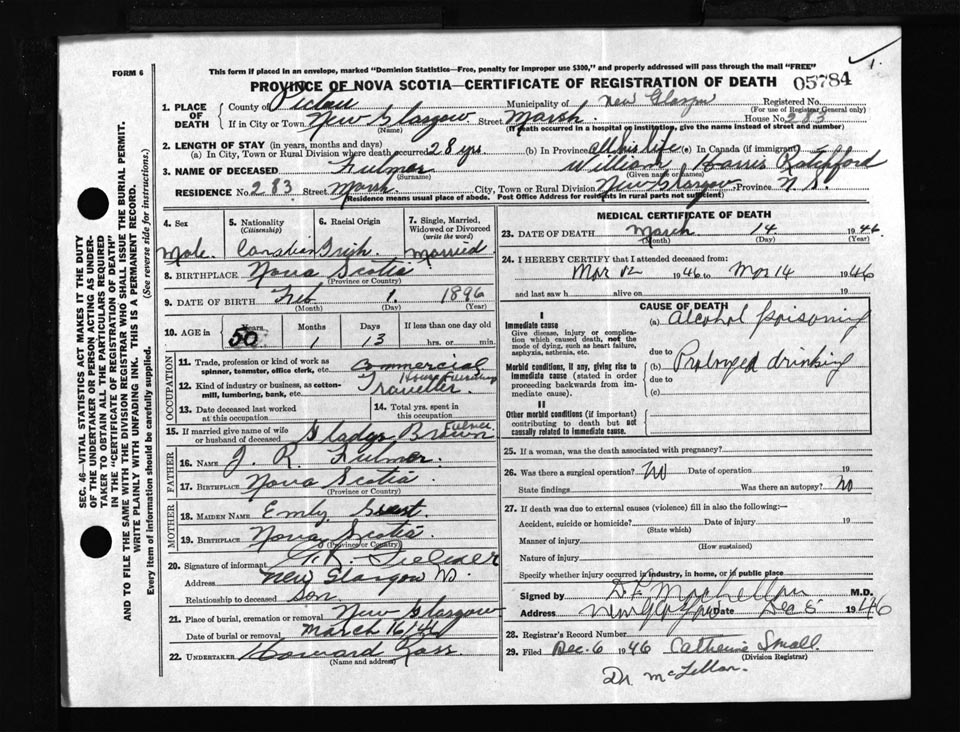 FORM 6
This form if placed in an envelope, marked "Dominion Statistics—Free, penalty for improper use $300," and properly addressed will pass through the mail "FREE"
PROVINCE OF NOVA SCOTIA—CERTIFICATE OF REGISTRATION OF DEATH 05784
1. PLACE OF DEATH County of Pictou Municipality of New Glasgow Registered No.
(For use of Registrar General only)
If in City or Town New Glasgow Street Marsh House No. 283
(Name) (If death occurred in a hospital or institution, give the name instead of street and number)
2. LENGTH OF STAY (in years, months and days)
(a) In City, Town or Rural Division where death occurred 28 yrs. (b) In Province all his life (c) In Canada (if immigrant)
3. NAME OF DECEASED Fulmer William Harris Ratchford
(Surname) (Given name or names)
RESIDENCE No. 283 Street Marsh City, Town or Rural Division New Glasgow Province N.S.
(Residence means usual place of abode. Post Office Address for residents in rural parts not sufficient)
4. Sex
Male
5. Nationality
(Citizenship)
Canadian
6. Racial Origin
Irish
7. Single, Married, Widowed or Divorced
(write the word)
Married
8. BIRTHPLACE Nova Scotia
(Province or Country)
9. DATE OF BIRTH Feb 1. 1896
(Month) (Day) (Year)
10. AGE in Years Months Days If less than one day old
50 1 13 hrs. or min.
OCCUPATION
11. Trade, profession or kind of work as spinner, teamster, office clerk, etc. Commercial
12. Kind of industry or business, as cotton-mill, lumbering, bank, etc. Traveller.
13. Date deceased last worked at this occupation
14. Total yrs. spent in this occupation
15. If married give name of wife or husband of deceased Gladys Brown Fulmer
FATHER
16. NAME J. R. Fulmer.
17. BIRTHPLACE Nova Scotia
(Province or Country)
MOTHER
18. MAIDEN NAME Emly
19. BIRTHPLACE Nova Scotia
(Province or Country)
20. Signature of informant
Address New Glasgow NS.
Relationship to deceased Son.
21. Place of burial, cremation or removal New Glasgow
Date of burial or removal March 16/46
22. UNDERTAKER Howard Ross.
(Name and address)
MEDICAL CERTIFICATE OF DEATH
23. DATE OF DEATH March 14. 1946.
(Month) (Day) (Year)
24. I HEREBY CERTIFY that I attended deceased from:
Mar 12 1946 to Mar 14 1946
and last saw h alive on 19
CAUSE OF DEATH
I
Immediate cause
Give disease, injury or complication which caused death, not the mode of dying, such as heart failure, asphyxia, asthenia, etc.
(a) Alcohol poisoning
due to
Morbid conditions, if any, giving rise to immediate cause (stated in order proceeding backwards from immediate cause).
(b) Prolonged drinking
due to
(c)
II
Other morbid conditions (if important) contributing to death but not causally related to immediate cause.
25. If a woman, was the death associated with pregnancy?
26. Was there a surgical operation? No Date of operation 19
State findings Was there an autopsy? No
27. If death was due to external causes (violence) fill in also the following:—
Accident, suicide or homicide? Date of injury 19
(State which)
Manner of injury
(How sustained)
Nature of injury
Specify whether injury occurred in industry, in home, or in public place
Signed by M.D.
Address New Glasgow Date Dec 5 1946
28. Registrar's Record Number
29. Filed Dec. 6 1946 Catherine Small.
(Division Registrar)
Dr. McLellan.
SEC. 46—VITAL STATISTICS ACT MAKES IT THE DUTY
OF THE UNDERTAKER OR PERSON ACTING AS UNDER-
TAKER TO OBTAIN ALL THE PARTICULARS REQUIRED
IN THE "CERTIFICATE OF REGISTRATION OF DEATH"
AND TO FILE THE SAME WITH THE DIVISION REGISTRAR WHO SHALL ISSUE THE BURIAL PERMIT.
WRITE PLAINLY WITH UNFADING INK. THIS IS A PERMANENT RECORD.
Every item of information should be carefully supplied. (See reverse side for instructions.)